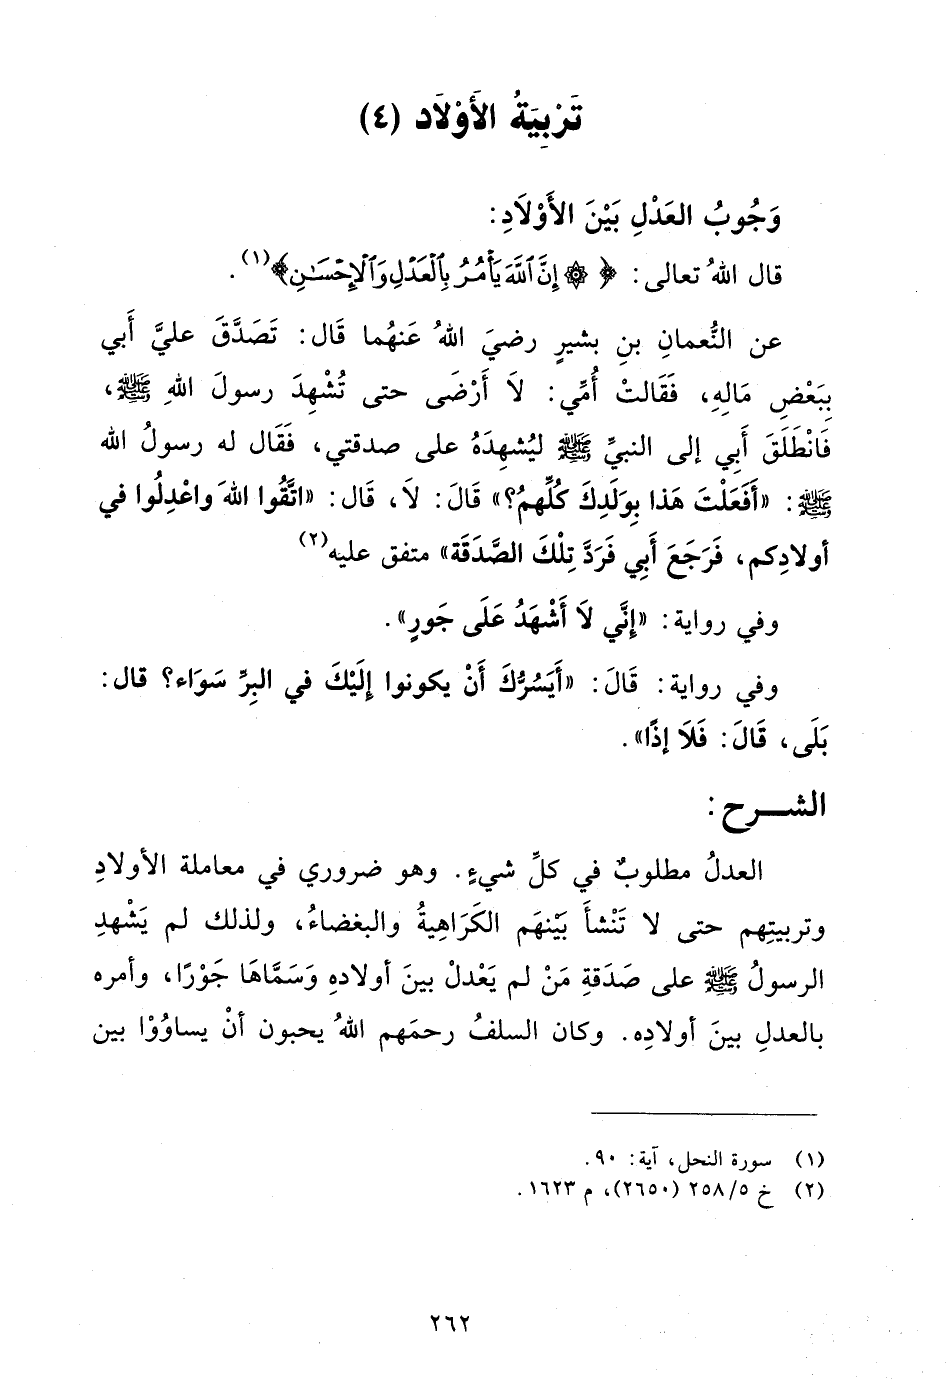 تَرْبِيَةُ الأَوْلَاد (٤)
وَجُوبُ العَدْلِ بَيْنَ الأَوْلَادِ:
قال اللهُ تعالى: ﴿ ۞ إِنَّ ٱللَّهَ يَأْمُرُ بِٱلْعَدْلِ وَٱلْإِحْسَٰنِ﴾(١).
عن النُّعمانِ بنِ بشيرٍ رضيَ اللهُ عَنهُما قَال: تَصَدَّقَ عليَّ أَبي
بِبَعْضِ مَالِهِ، فَقَالتْ أُمِّي: لا أَرْضَى حتى تُشْهِدَ رسولَ اللهِ ﷺ،
فَانْطَلَقَ أَبِي إلى النبيِّ ﷺ ليُشهِدَهُ على صدقتي، فَقَال له رسولُ الله
ﷺ: «أَفَعَلْتَ هَذا بِوَلَدِكَ كُلِّهِمُ؟» قَالَ: لَا، قَال: «اتَّقُوا اللهَ واعْدِلُوا في
أولادِكم، فَرَجَعَ أَبي فَرَدَّ تِلْكَ الصَّدَقَة» متفق عليه(٢)
وفي رواية: «إِنَّي لَا أَشْهَدُ عَلَى جَورٍ».
وفي رواية: قَالَ: «أَيَسُرُّكَ أَنْ يكونوا إِلَيْكَ في البِرِّ سَوَاء؟ قال:
بَلَى، قَالَ: فَلَا إِذًا».
الشـــرح:
العدلُ مطلوبٌ في كلِّ شيءٍ. وهو ضروري في معاملة الأولادِ
وتربيتِهم حتى لا تَنْشأَ بَيْنهَم الكَرَاهِيةُ والبغضاءُ، ولذلك لم يَشْهدِ
الرسولُ ﷺ على صَدَقةِ مَنْ لم يَعْدلْ بينَ أولاده وَسَمَّاهَا جَوْرًا، وأمره
بالعدلِ بينَ أولادِه. وكان السلفُ رحمَهم اللهُ يحبون أنْ يساوُوْا بين
(١) سورة النحل، آية: ٩٠.
(٢) خ ٢٥٨/٥ (٢٦٥٠)، م ١٦٢٣.
٢٦٢